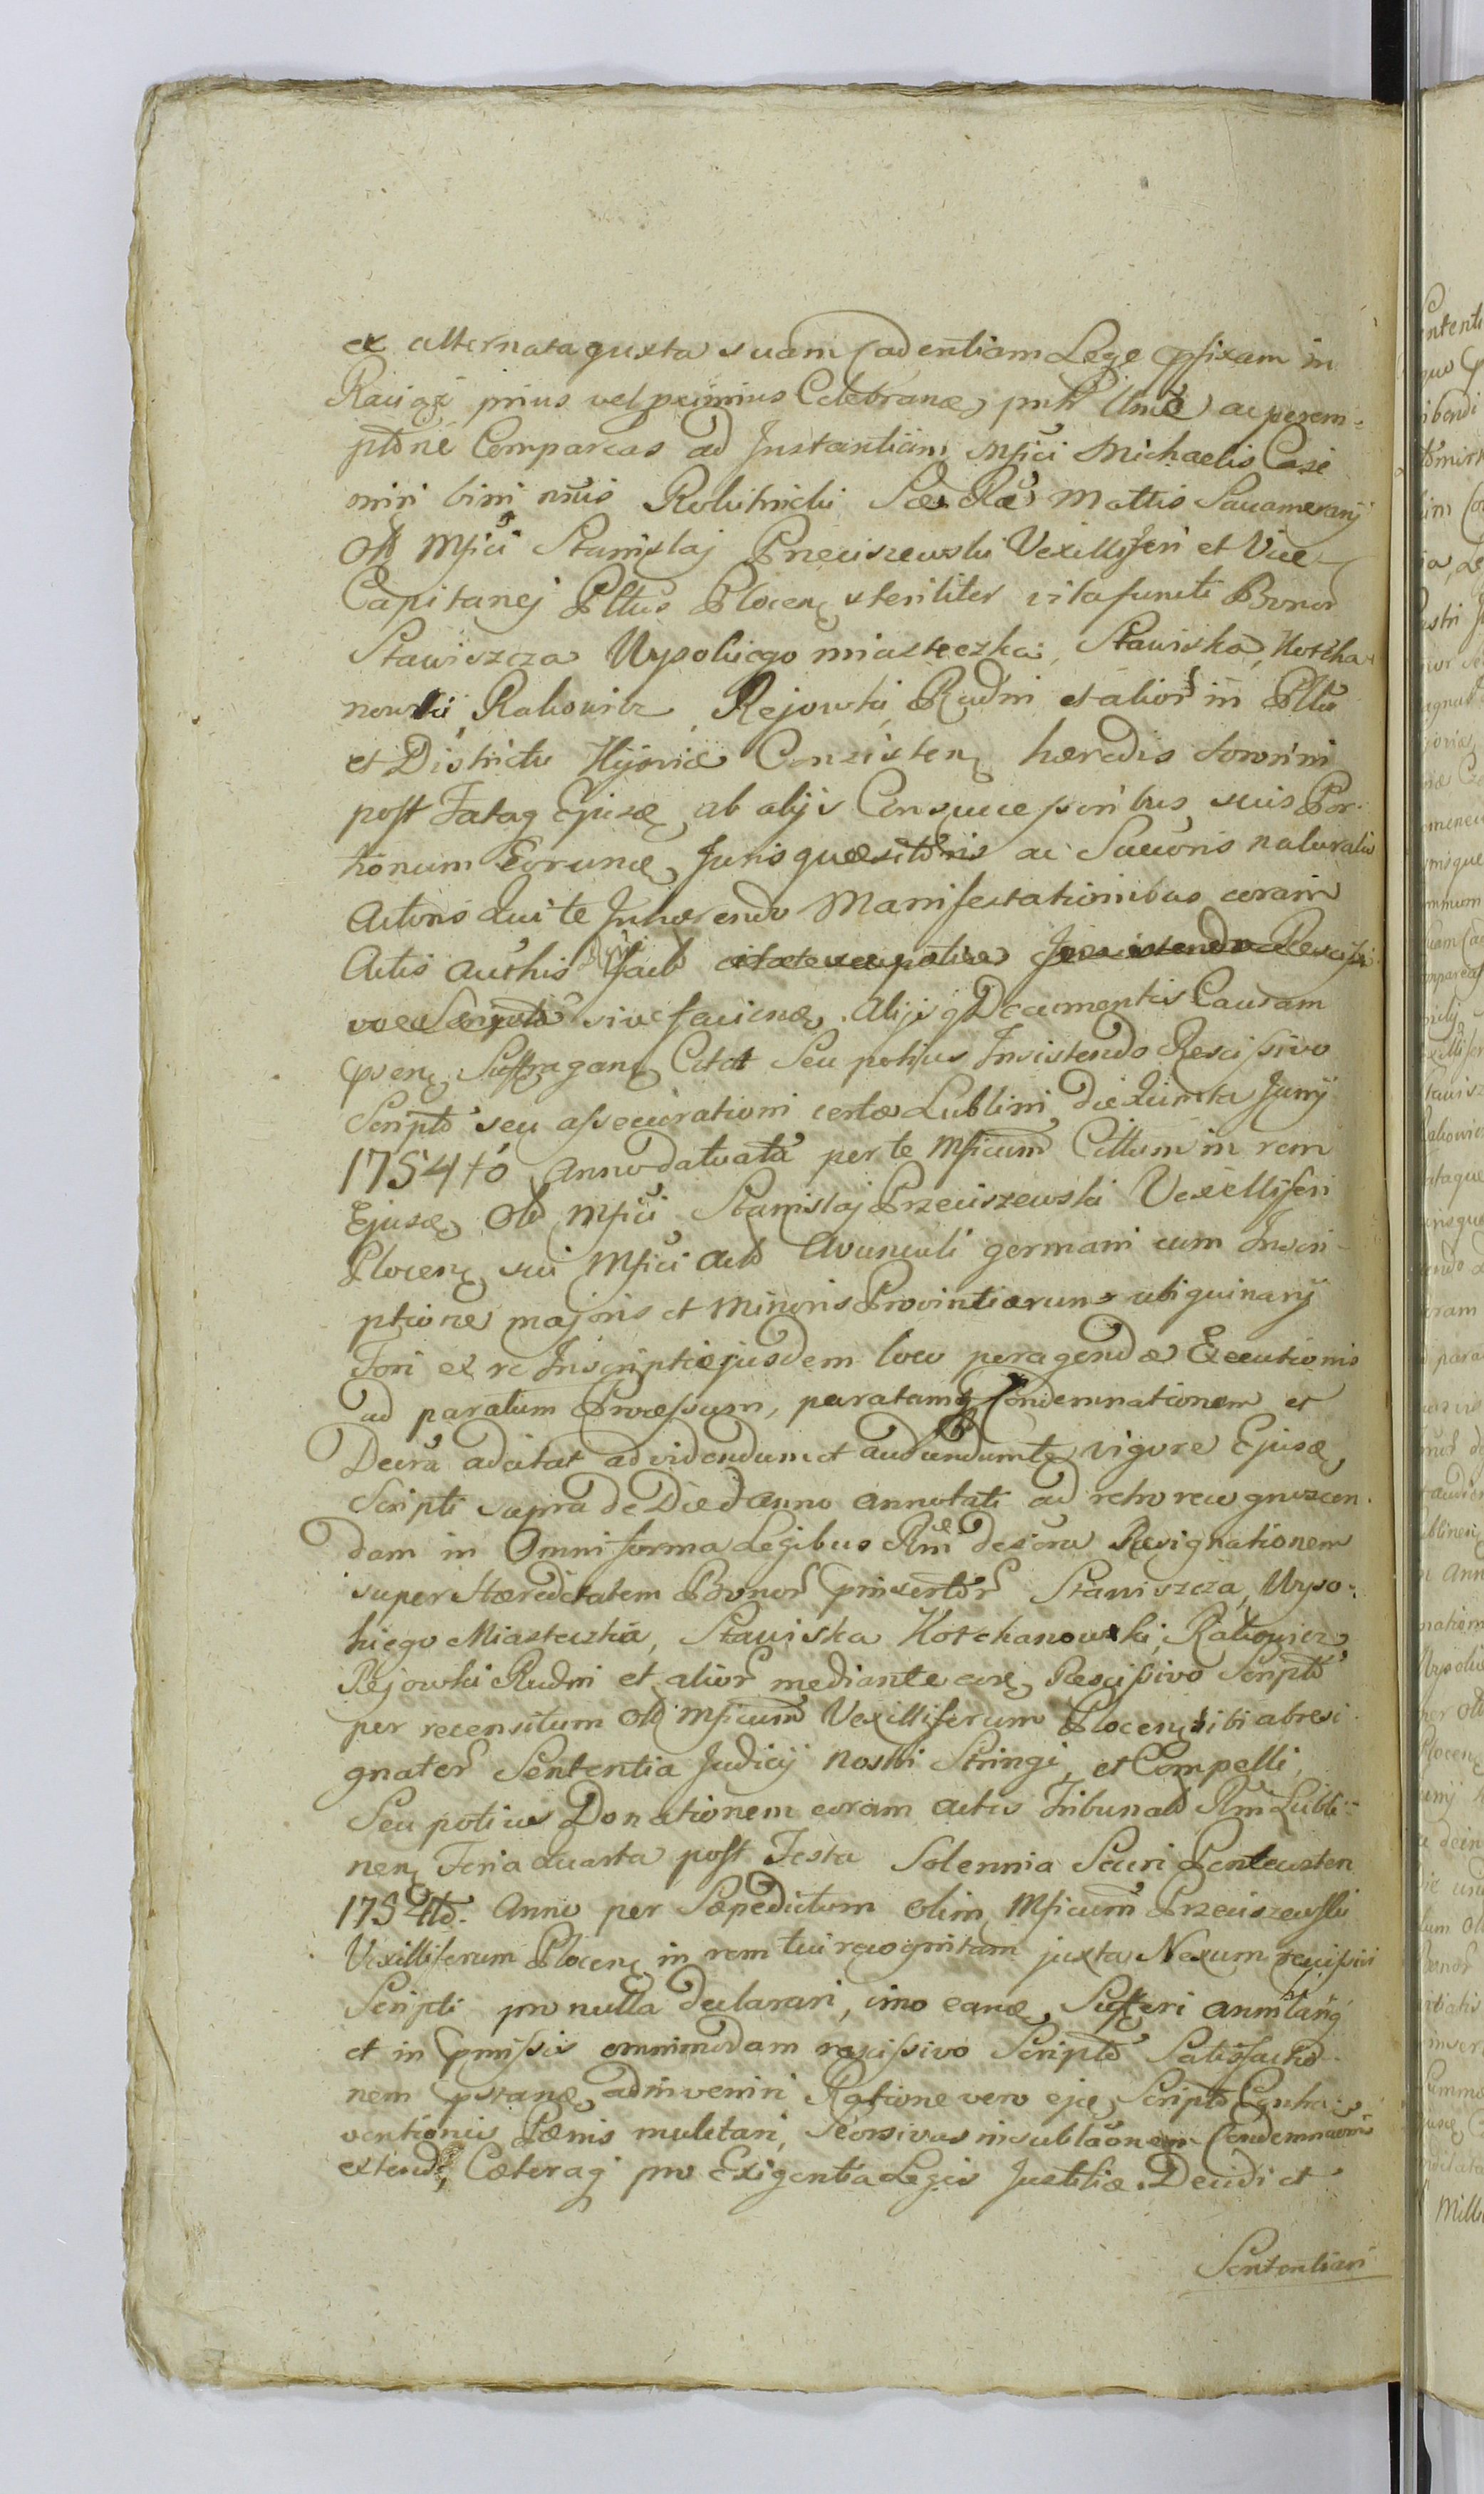 ex alternata juxta suam Cadentiam Lege pfixam in
prius vel proximius Celebranæ, ac perem=
ptõrie Compareas ad Instantiam Mfici Michaelis Casi
miri bini nõis Rokitnicki Sac Ræ Mattis Camerarij
Olĩ Mfici Stanislaj Przeciszewski Vexilliferi et Vice
Capitanej Pltus Plocen steriliter vita functi Bonor
Stawiszcza Wysokiego miasteczka, Stawiska, Kotcha
nowski, Rakowicz, Rejowki, Rudni et alior in Pltu
et Districtu Kijoviæ Consisten hæredis domini
post Fataq Ejusæ, ab alijs Consuccessoribus suis Por
tionum Earunæ, Juris quæsitoris ac Succõris naturalis
Actoris Qui te Inhærendo Manifestationibus coram
Actis Authis fact
Script sive facienæ. Alijsq Documentis Causam
psen Suffragan Citat Seu potius Insistendo Rescissivo
Scripto seu assecurationi certæ Lublini die Quinta Junij
1754to Anno datuatã per te Mficum Cittum in rem
Ejusæ, Olĩ Mfici Stanislaj Przeciszewski Vexilliferi
Plocen, sui Mfici Act Avunculi germani cum Inscri
ptione majoris et minoris Provintiarum ubiquinarij
Fori ex re Inscriptiõ ejusdem loco peragendæ Executionis
ad paratum Processum, paratamq Condemnationem et
Decra adcitat ad videndum et audiendum te vigore Ejusæ,
Scripti supra de Die et anno annotati ad retro recognoscen
dam in Omni forma Legibus Rni descra Resignationem
super Hæreditatem Bonor pinsertor Stawiszcza, Wyso=
kiego Miasteczka, Stawiska Kotchanowski, Rakowicz,
Rejowki Rudni et alior mediante eoæ, Rescissivo Scripto
per recensitum Olĩ Mficum Vexilliferum Plocen sibi abresi
gnator Sententia Judicij nostri Stringi, et Compelli,
Seu potius Donationem coram actis Tribunal Rni Lubli=
nen Feria quarta post Festa Solennia Sacri Pentecosten
1754to. Anno per Sæpedictum olim Mficum Przeciszewski
Vexilliferum Plocen in rem tui recognitam juxta Nexum rescissivi
Scripti pro nulla declarari, imo eanæ, Cassari annilariq
et in pmissis omnimodam rescissivo Scripto Satisfactio
nem pstanæ, adinveniri Ratione vero ejæ, Scripto Contra
ventionis Pænis mulctari, Seorsivas in sublãonem Condemnãonis
extend, Cæteraq pro Exigentia Legis Justitiæ. Decidi et
Sententiari